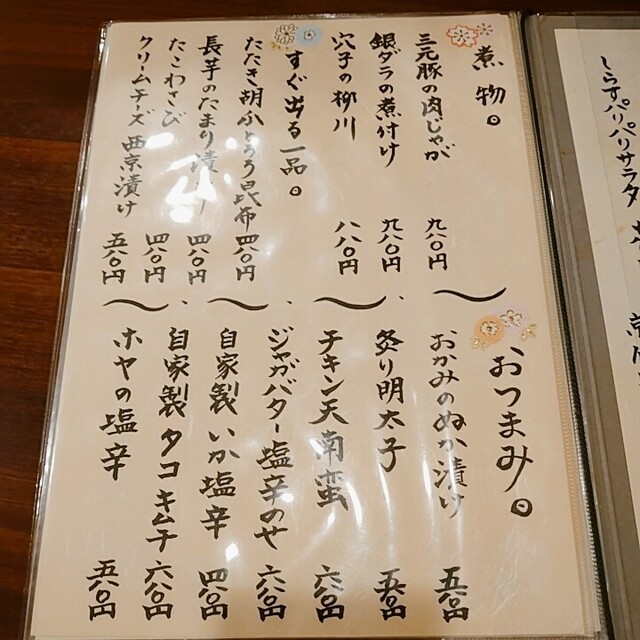 煮物。
三元豚の肉じゃが 九八〇円
銀ダラの煮付け 九八〇円
穴子の柳川 八八〇円
すぐ出る一品。
たたき胡ふとろろ昆布 四八〇円
長芋のたまり漬け 四八〇円
たこわさび 四八〇円
クリームチーズ西京漬け 五八〇円
おつまみ。
おかみのぬか漬け 五八〇円
炙り明太子 五八〇円
チキン天南蛮 六八〇円
ジャガバター塩辛のせ 六八〇円
自家製いか塩辛 四八〇円
自家製タコキムチ 六八〇円
ホヤの塩辛 五八〇円
しらすパリパリサラダ